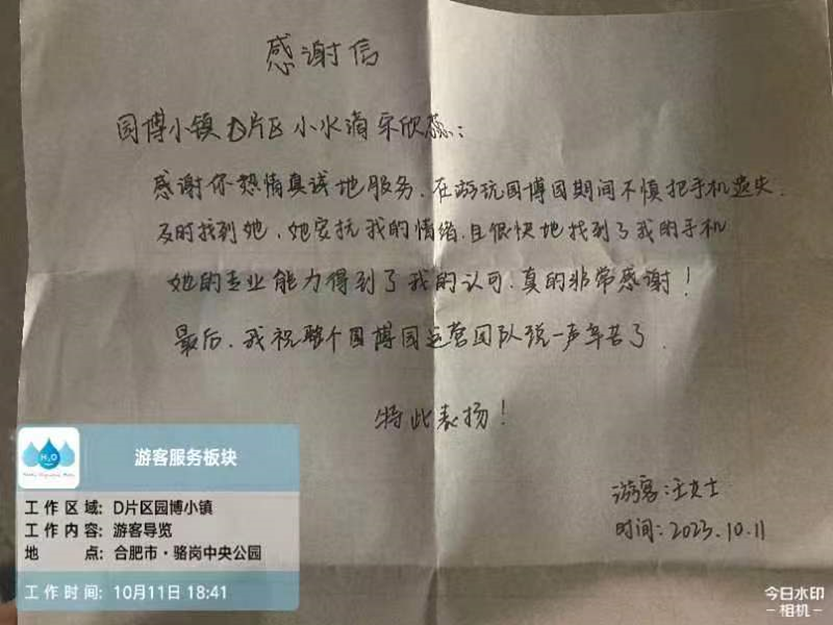 感谢信
园博小镇D片区小水滴宋欣蕊:
感谢你热情真诚地服务.在游玩园博园期间不慎把手机遗失.
及时找到她,她安抚我的情绪.且很快地找到了我的手机
她的专业能力得到了我的认可.真的非常感谢!
最后.我祝整个园博园运营团队说一声辛苦了.
特此表扬!
游客:王女士
时间:2023.10.11
H₂O
游客服务板块
工作区域: D片区园博小镇
工作内容: 游客导览
地点: 合肥市·骆岗中央公园
工作时间: 10月11日 18:41
今日水印
-相机-